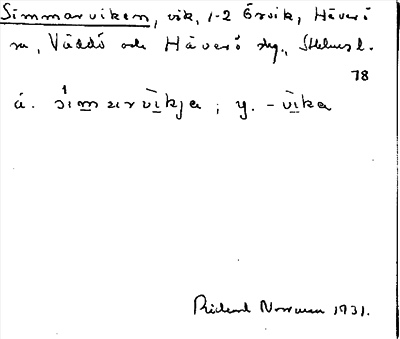 Simmarviken, vik, 1-2 Örsvik, Häverö
sn, Väddö och Häverö slg., Sthlms l.
78
á. sìmarvìkja ; y. -vìka
Rickard Norrman 1931.